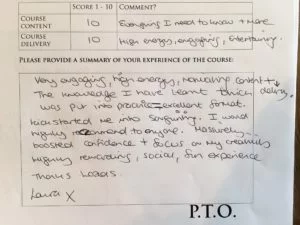 SCORE 1 - 10 COMMENT?
COURSE CONTENT 10 Everything I need to know + more
COURSE DELIVERY 10 High energy, engaging, Entertaining.
PLEASE PROVIDE A SUMMARY OF YOUR EXPERIENCE OF THE COURSE:
Very engaging, high energy, content + delivery.
The knowledge I have learnt
was put into practice excellent format.
Kickstarted me into I would
highly recommend to anyone. Massively
boosted confidence + focus on my creativity
Highly rewarding, social, fun experience
Thanks
Laura X
P.T.O.